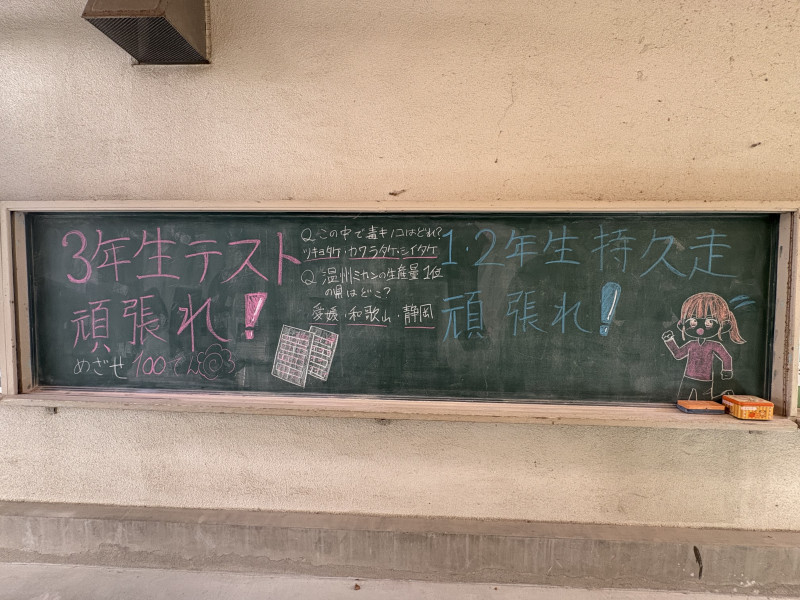 3年生テスト
頑張れ!
めざせ100てん
Q この中で毒キノコはどれ?
ツキヨタケ・カワラタケ・シイタケ
Q 温州ミカンの生産量1位
の県はどこ?
愛媛・和歌山・静岡
1・2年生持久走
頑張れ!